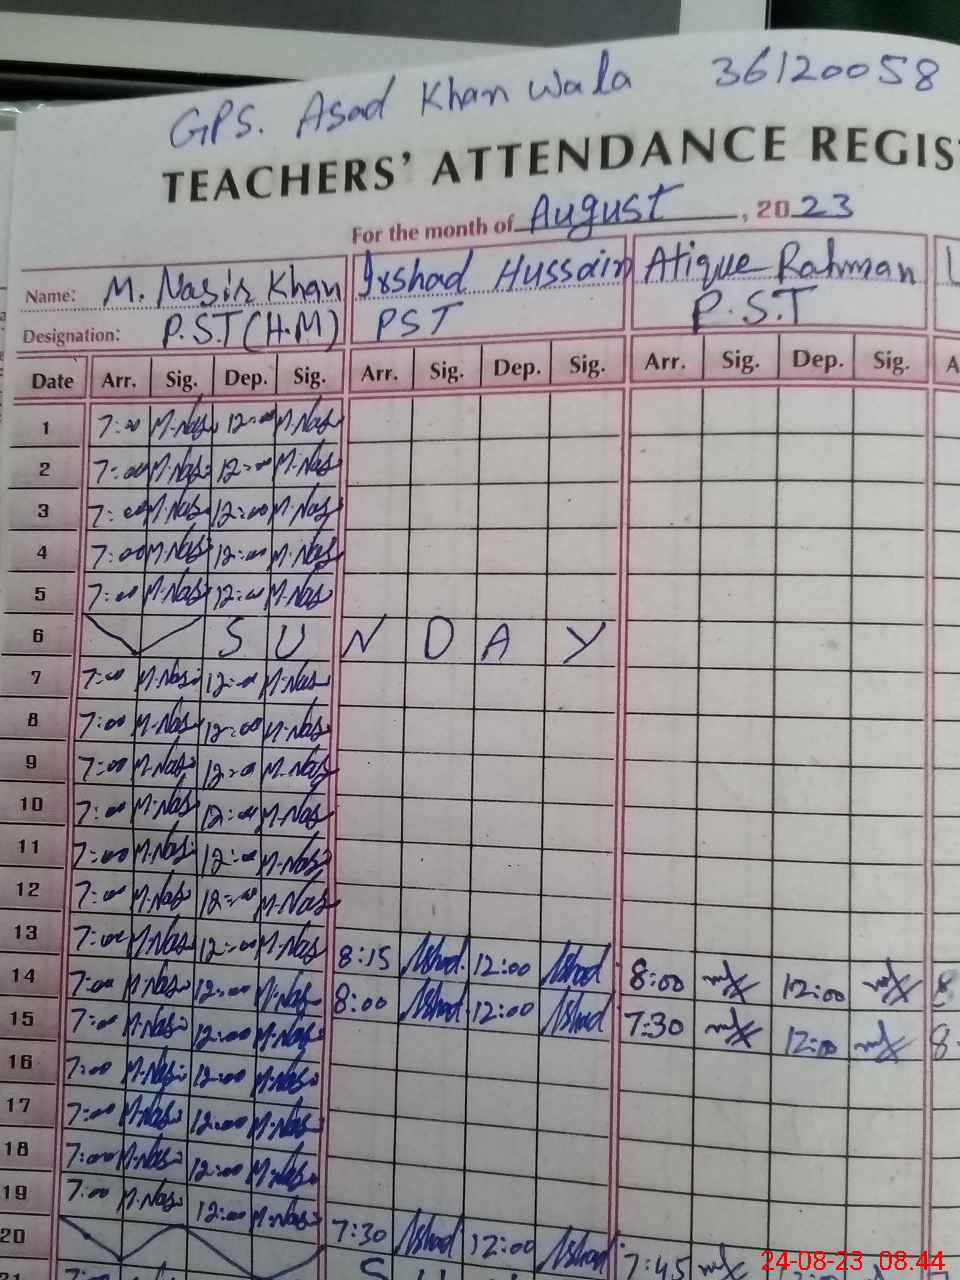 GPS. Asad Khan Wala 36120058
TEACHERS' ATTENDANCE REGIS
For the month of August, 2023
Name: M. Nasir Khan Irshad Hussain Atique Rahman
Designation: P.S.T (H.M) PST P.S.T
Date Arr. Sig. Dep. Sig. Arr. Sig. Dep. Sig. Arr. Sig. Dep. Sig. A
1 7:00 M.Nas 12:00 M.Nas
2 7:00 M.Nas 12:00 M.Nas
3 7:00 M.Nas 12:00 M.Nas
4 7:00 M.Nas 12:00 M.Nas
5 7:00 M.Nas 12:00 M.Nas
6 S U N D A Y
7 7:00 M.Nas 12:00 M.Nas
8 7:00 M.Nas 12:00 M.Nas
9 7:00 M.Nas 12:00 M.Nas
10 7:00 M.Nas 12:00 M.Nas
11 7:00 M.Nas 12:00 M.Nas
12 7:00 M.Nas 12:00 M.Nas
13 7:00 M.Nas 12:00 M.Nas 8:15 Irshad 12:00 Irshad 8:00 12:00 8
14 7:00 M.Nas 12:00 M.Nas 8:00 Irshad 12:00 Irshad 7:30 12:00 8
15 7:00 M.Nas 12:00 M.Nas
16 7:00 M.Nas 12:00 M.Nas
17 7:00 M.Nas 12:00 M.Nas
18 7:00 M.Nas 12:00 M.Nas
19 7:00 M.Nas 12:00 M.Nas 7:30 Irshad 12:00 Irshad 7:45
20 S U
21 7:00
24-08-23 08.44